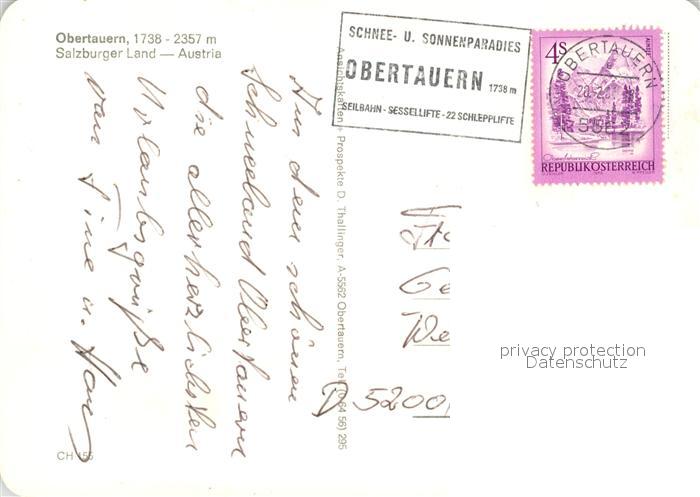 Obertauern, 1738 - 2357 m
Salzburger Land — Austria
SCHNEE- U. SONNENPARADIES
OBERTAUERN 1738 m
SEILBAHN - SESSELLIFTE - 22 SCHLEPPLIFTE
4S
ALMSEE
REPUBLIK ÖSTERREICH
OBERTAUERN
Aus dem schönen
Schneeland Obertauern
die allerherzlichsten
Urlaubsgrüße
von Tine u.
Ansichtskarten + Prospekte D. Thallinger, A-5562 Obertauern, Tel. 64 56) 295
D 5200
privacy protection
Datenschutz
CH 155